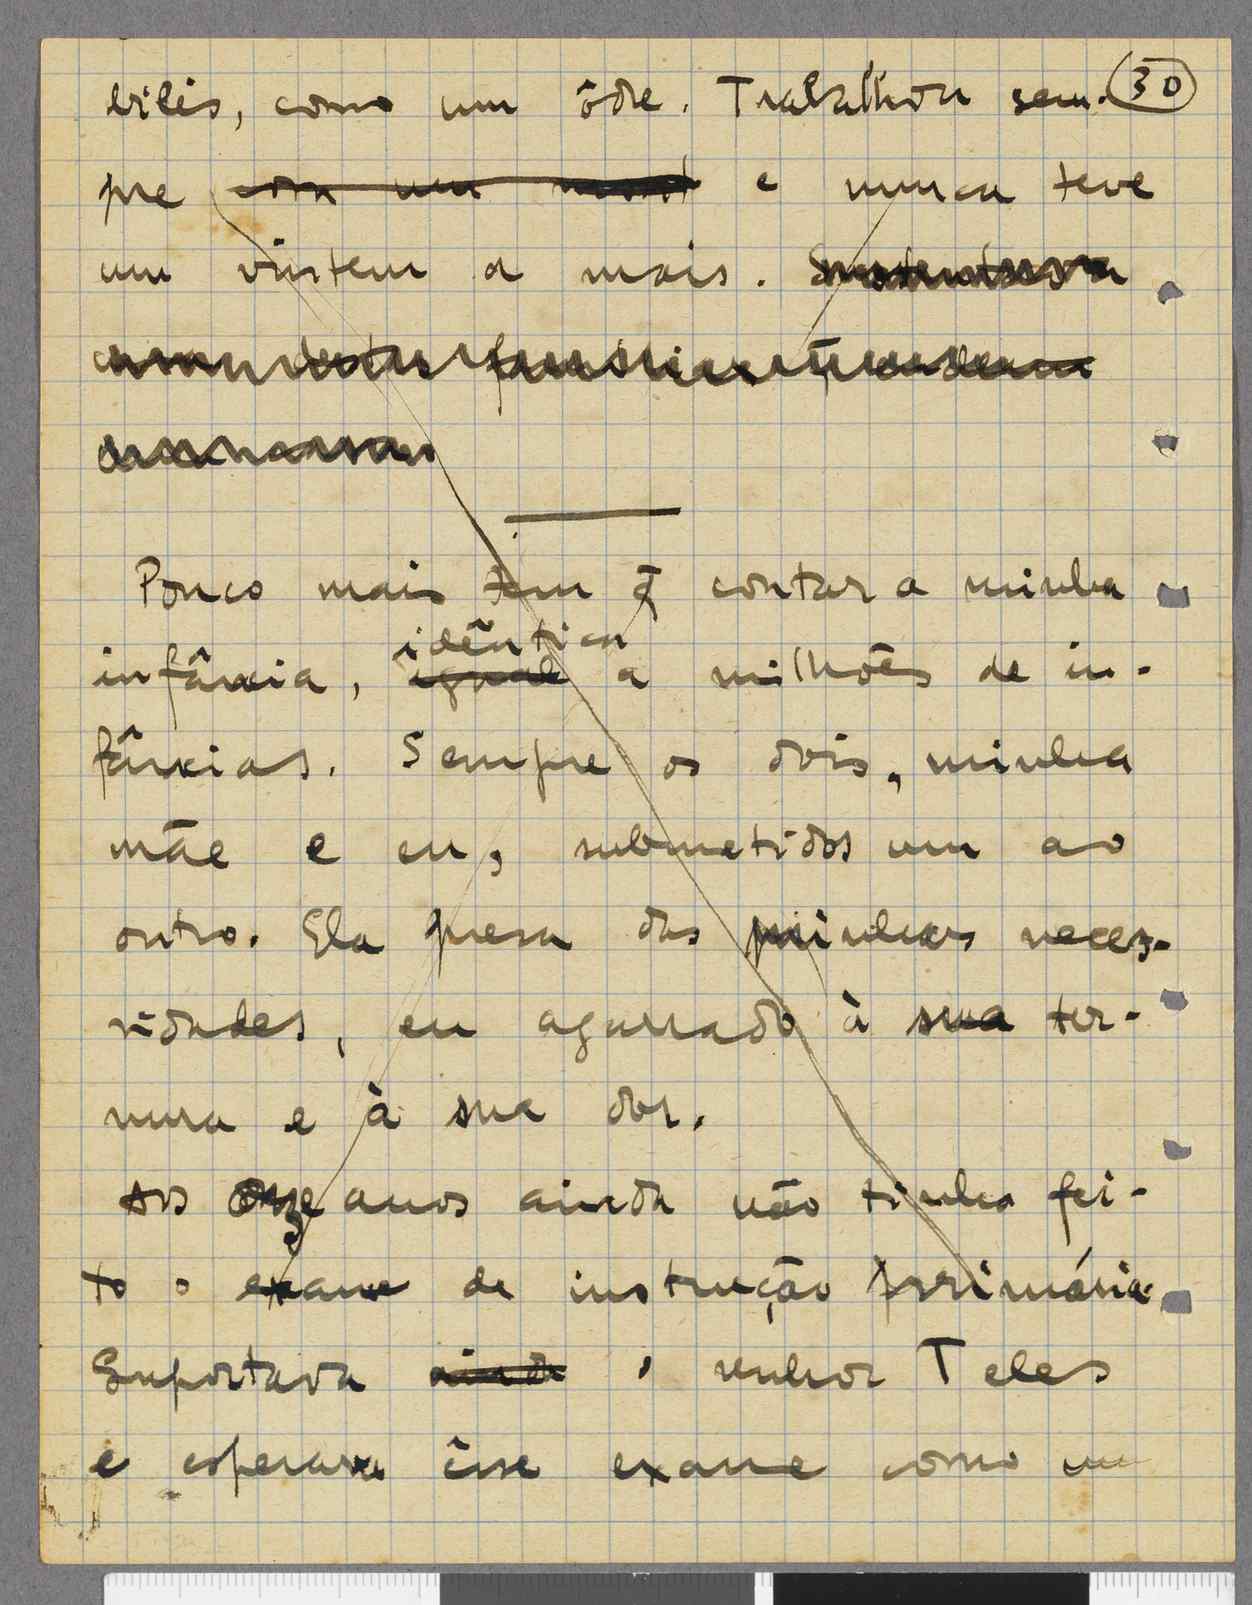 bilis, como um ôdre. Trabalhou sem- 30
pre com um e nunca teve
um vintem a mais. Sustentava
Pouco mais tem q̄ contar a minha
idêntica
infância, igual a milhões de in-
fâncias. Sempre os dois, minha
mãe e eu, submetidos um ao
outro. Ela presa das minhas neces-
sidades, eu agarrado à sua ter-
nura e à sua dor.
Aos onze anos ainda não tinha fei-
to o exame de instrução primária.
Suportava ainda o senhor Teles
e esperava êsse exame como um